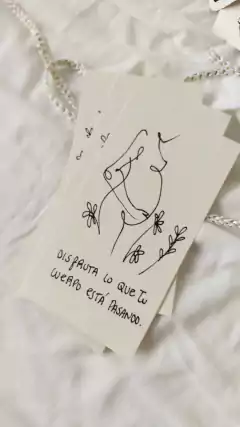 DISFRUTA LO QUE TU
CUERPO ESTÁ PASANDO.